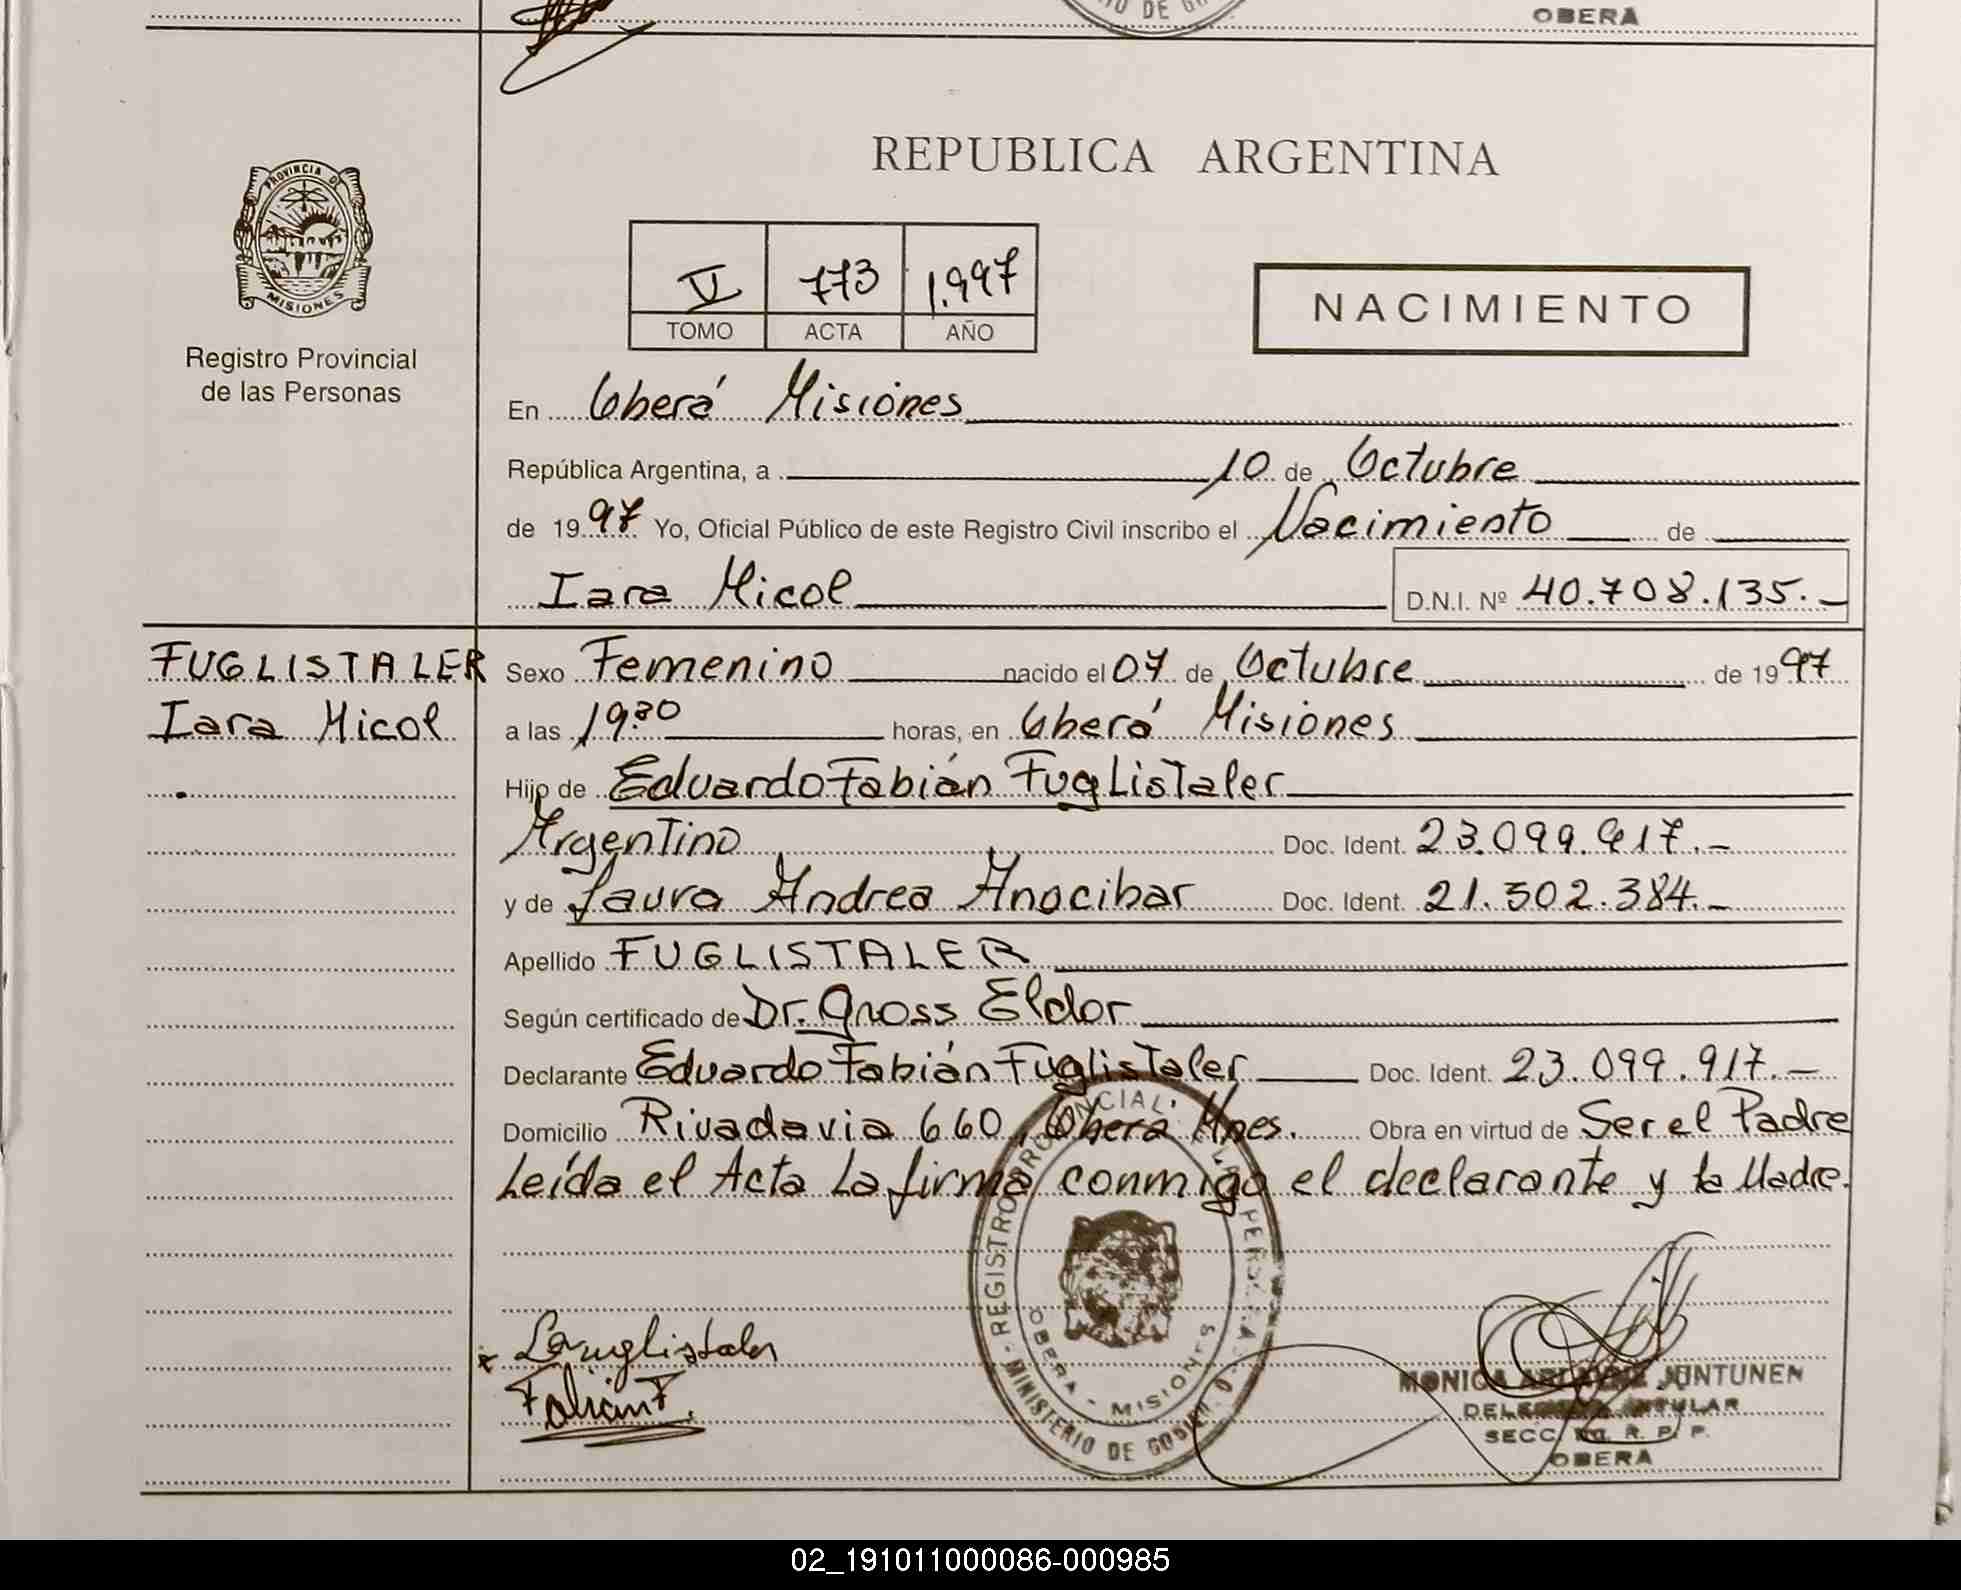 OBERA
REPUBLICA ARGENTINA
PROVINCIA DE
MISIONES
Registro Provincial
de las Personas
V 773 1.997
TOMO ACTA AÑO
NACIMIENTO
En Oberá Misiones
República Argentina, a 10 de Octubre
de 1997 Yo, Oficial Público de este Registro Civil inscribo el Nacimiento de
Iara Micol D.N.I. Nº 40.708.135.-
FUGLISTALER
Iara Micol
Sexo Femenino nacido el 07 de Octubre de 1997
a las 19:30 horas, en Oberá Misiones
Hijo de Eduardo Fabián Fuglistaler
Argentino Doc. Ident. 23.099.917.-
y de Laura Andrea Anocibar Doc. Ident. 21.302.384.-
Apellido FUGLISTALER
Según certificado de Dr. Gross Eldor
Declarante Eduardo Fabián Fuglistaler Doc. Ident. 23.099.917.-
Domicilio Rivadavia 660, Oberá Mnes. Obra en virtud de Ser el Padre
Leída el Acta La firma conmigo el declarante y la Madre.
REGISTRO PROVINCIAL DE LAS PERSONAS
OBERA - MISIONES
MINISTERIO DE GOBIERNO
Fabian F.
MONICA JUNTUNEN
DELEGADA TITULAR
SECC. R. P. P.
OBERA
02_191011000086-000985